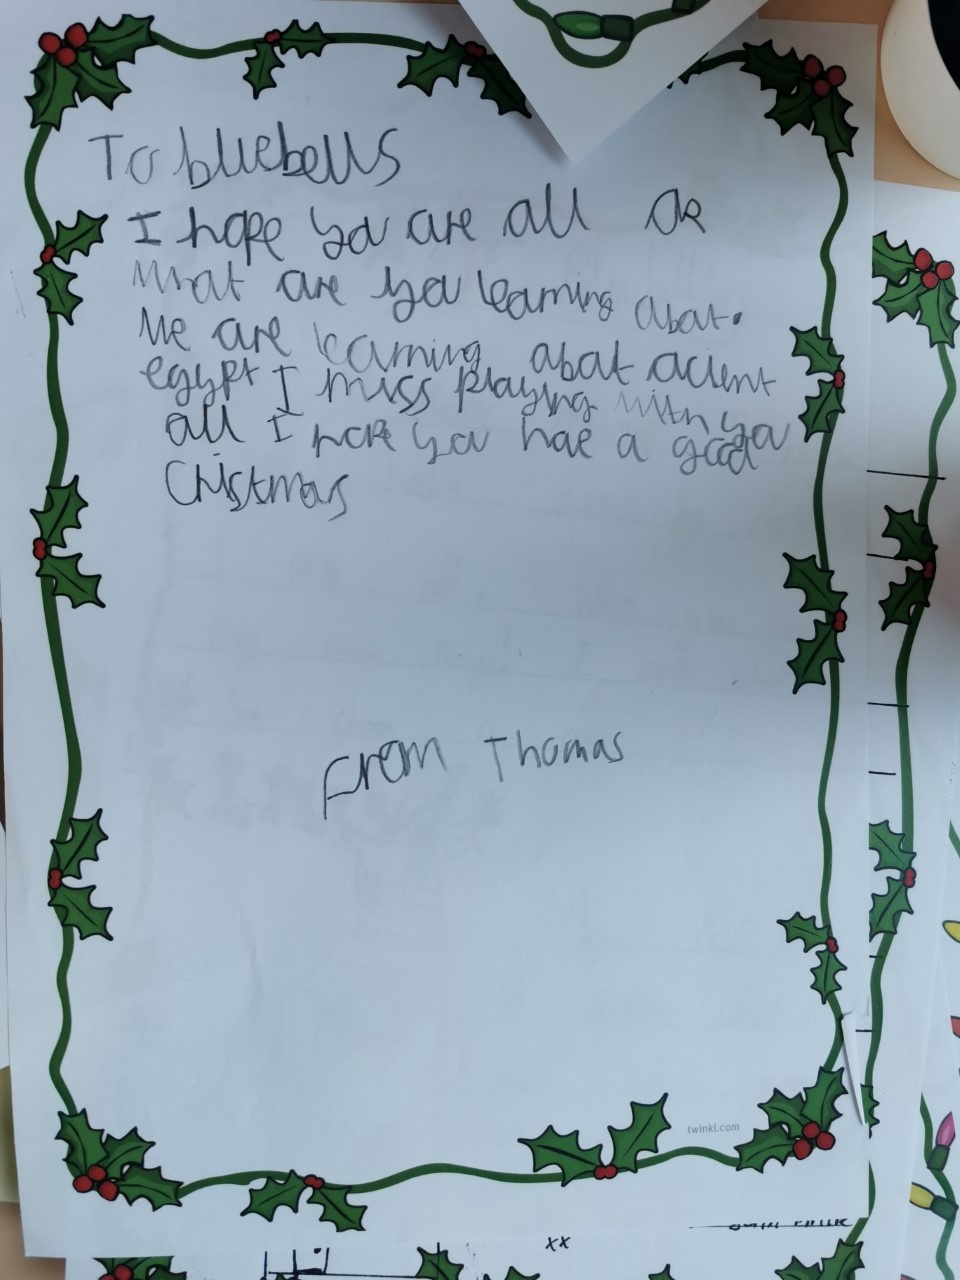 To bluebells
I hope you are all ok
What are you learning abat.
We are learning abat acient
egypt I miss playing with you
all I hope you hae a good
Chistmas
From Thomas
twinkl.com
xx